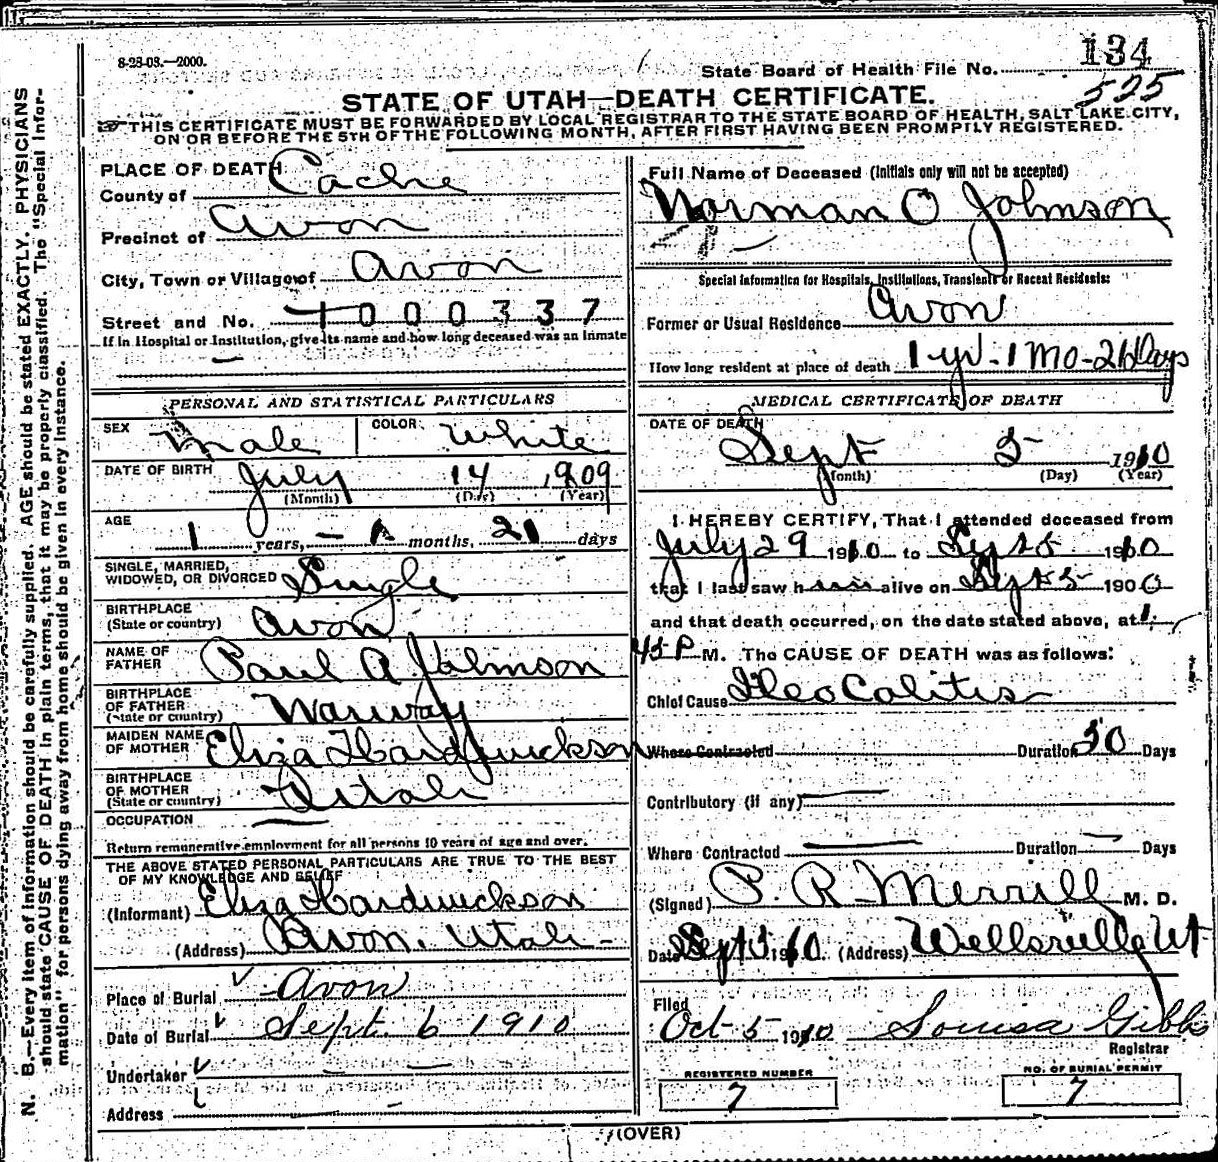 8-28-08.—2000.
134
State Board of Health File No.
525
STATE OF UTAH—DEATH CERTIFICATE.
THIS CERTIFICATE MUST BE FORWARDED BY LOCAL REGISTRAR TO THE STATE BOARD OF HEALTH, SALT LAKE CITY,
ON OR BEFORE THE 5TH OF THE FOLLOWING MONTH, AFTER FIRST HAVING BEEN PROMPTLY REGISTERED.
N. B.—Every item of information should be carefully supplied. AGE should be stated EXACTLY. PHYSICIANS
should state CAUSE OF DEATH in plain terms, that it may be properly classified. The "Special Infor-
mation" for persons dying away from home should be given in every instance.
PLACE OF DEATH
County of Cache
Precinct of Avon
City, Town or Village of Avon
Street and No. 1000337
If in Hospital or Institution, give its name and how long deceased was an inmate
PERSONAL AND STATISTICAL PARTICULARS
SEX Male COLOR White
DATE OF BIRTH July 14, 1909
(Month) (Day) (Year)
AGE
1 years, — 1 months, 21 days
SINGLE, MARRIED,
WIDOWED, OR DIVORCED Single
BIRTHPLACE
(State or country) Avon
NAME OF
FATHER Paul A Johnson
BIRTHPLACE
OF FATHER
(State or country) Norway
MAIDEN NAME
OF MOTHER Eliza Hardwickson
BIRTHPLACE
OF MOTHER
(State or country) Utah
OCCUPATION
Return remunerative employment for all persons 10 years of age and over.
THE ABOVE STATED PERSONAL PARTICULARS ARE TRUE TO THE BEST
OF MY KNOWLEDGE AND BELIEF
(Informant) Eliza Hardwickson
(Address) Avon. Utah
Place of Burial Avon
Date of Burial Sept. 6 1910
Undertaker
Address
Full Name of Deceased (Initials only will not be accepted)
Norman O Johnson
Special Information for Hospitals, Institutions, Transients or Recent Residents:
Former or Usual Residence Avon
How long resident at place of death 1 yr - 1 Mo - 21 Days
MEDICAL CERTIFICATE OF DEATH
DATE OF DEATH
Sept 5 1910
(Month) (Day) (Year)
I HEREBY CERTIFY, That I attended deceased from
July 29 1910 to Sept 5 1910
that I last saw him alive on Sept 5 1900
and that death occurred, on the date stated above, at 1.
45 P M. The CAUSE OF DEATH was as follows:
Chief Cause Ileo Colitis
Where Contracted Duration 30 Days
Contributory (if any)
Where Contracted Duration Days
(Signed) P. R. Merrill M. D.
Date Sept 5 1910. (Address) Wellsville Ut
Filed
Oct 5 1910 Louisa Gibbs
Registrar
REGISTERED NUMBER
7
NO. OF BURIAL PERMIT
7
(OVER)